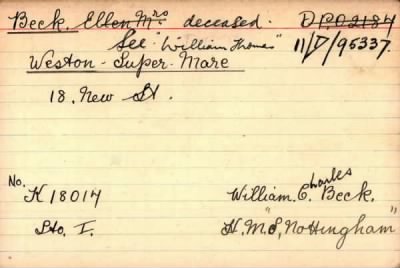 Beck, Ellen Mrs deceased. D.P.O2184
See "William Thomas" 11/D/95337.
Weston-Super-Mare
18. New St.
No. K 18017 William. Charles Beck.
Sto. I. H.M.S, "Nottingham"